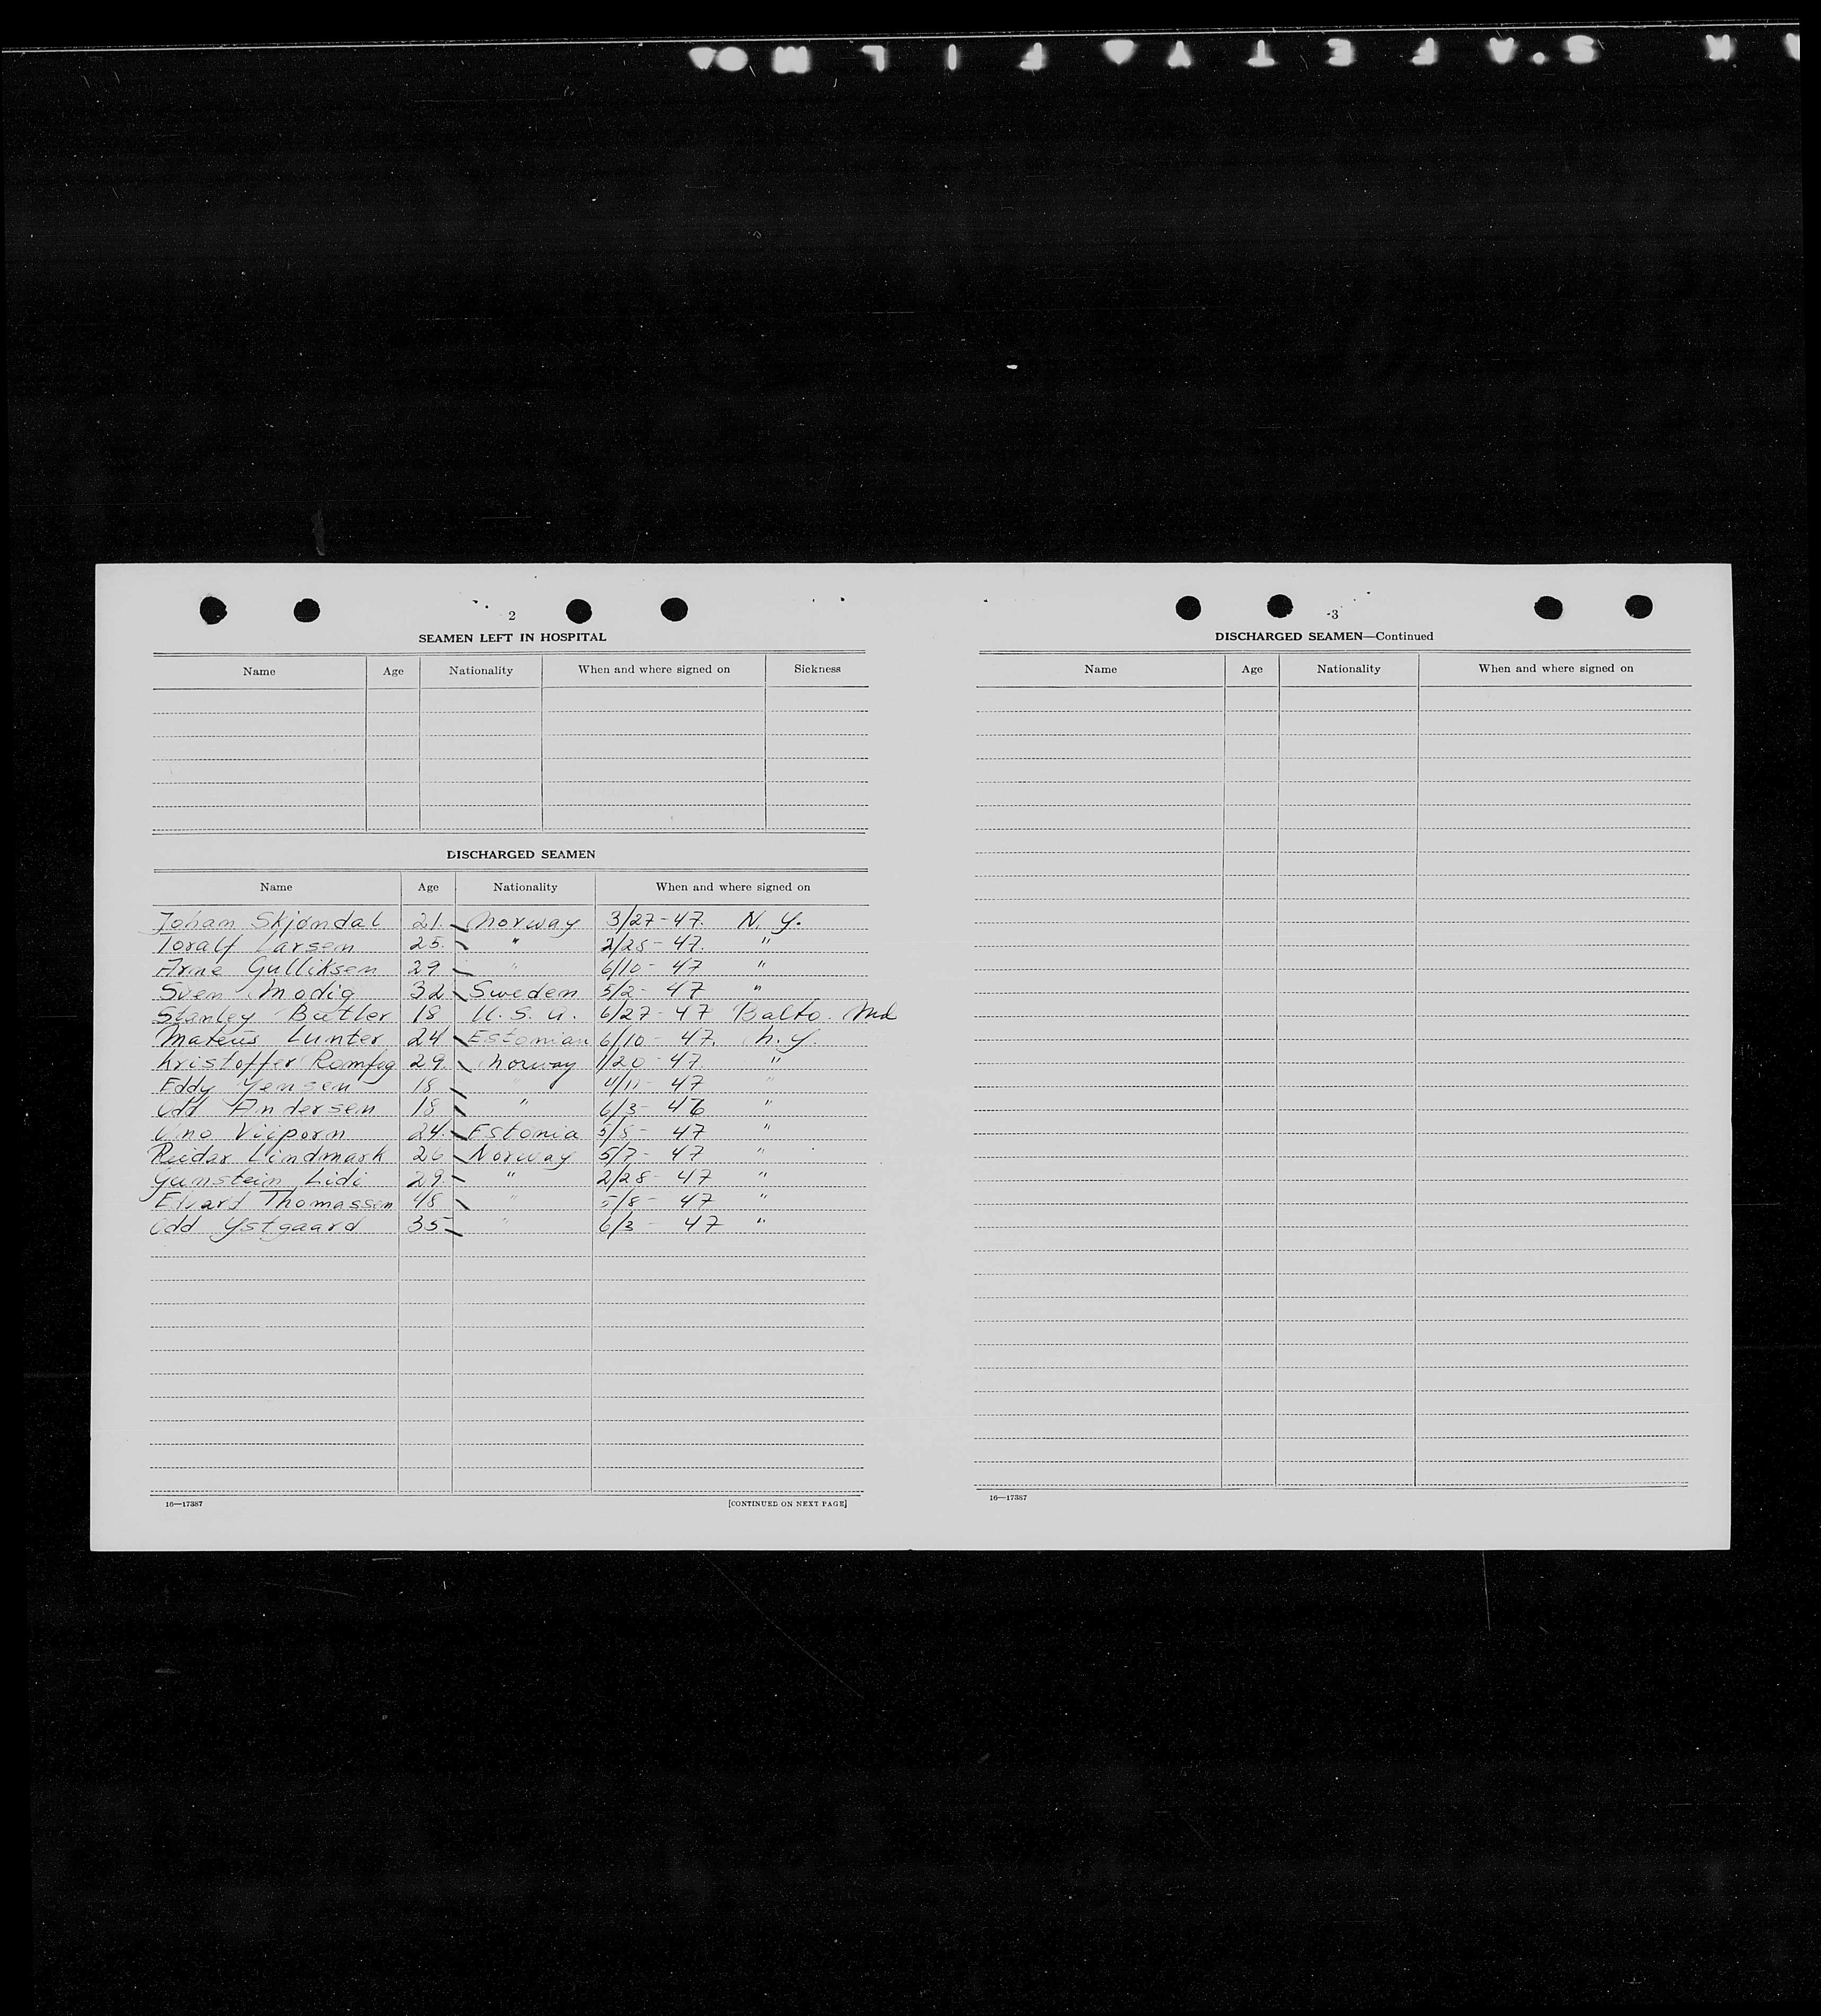 2
SEAMEN LEFT IN HOSPITAL
Name Age Nationality When and where signed on Sickness
DISCHARGED SEAMEN
Name Age Nationality When and where signed on
Johan Skjøndal 21. Norway 3/27-47. N. Y.
Toralf Larsen 25. " 2/28-47. "
Arne Gulliksen 29 " 6/10-47 "
Sven Modig 32 Sweden 5/2-47 "
Stanley Butler 18 U.S.A. 6/27-47 Balto. Md
Mateus Lunter 24 Estonian 6/10-47. N.Y.
Kristoffer Romfog 29. Norway 1/20-47. "
Eddy Jensen 18 " 4/11-47 "
Odd Andersen 18 " 6/3-46 "
Uno Viiporn 24. Estonia 5/5-47 "
Reidar Lindmark 26 Norway 5/7-47 "
Gunstein Lidi 29. " 2/28-47 "
Edvard Thomassen 48 " 5/8-47 "
Odd Ystgaard 35 " 6/3-47 "
16—17387
[CONTINUED ON NEXT PAGE]
3
DISCHARGED SEAMEN—Continued
Name Age Nationality When and where signed on
16—17387